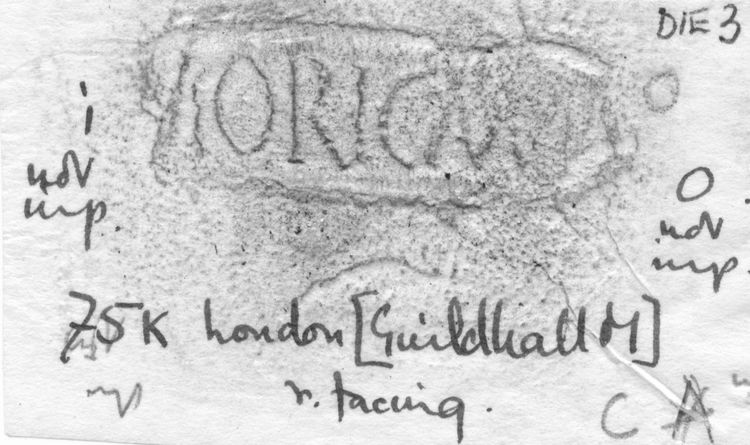 DIE 3
ORICA
i
ndv
imp.
O
ndv
imp.
75K London [Guildhall M]
r. facing.
C A